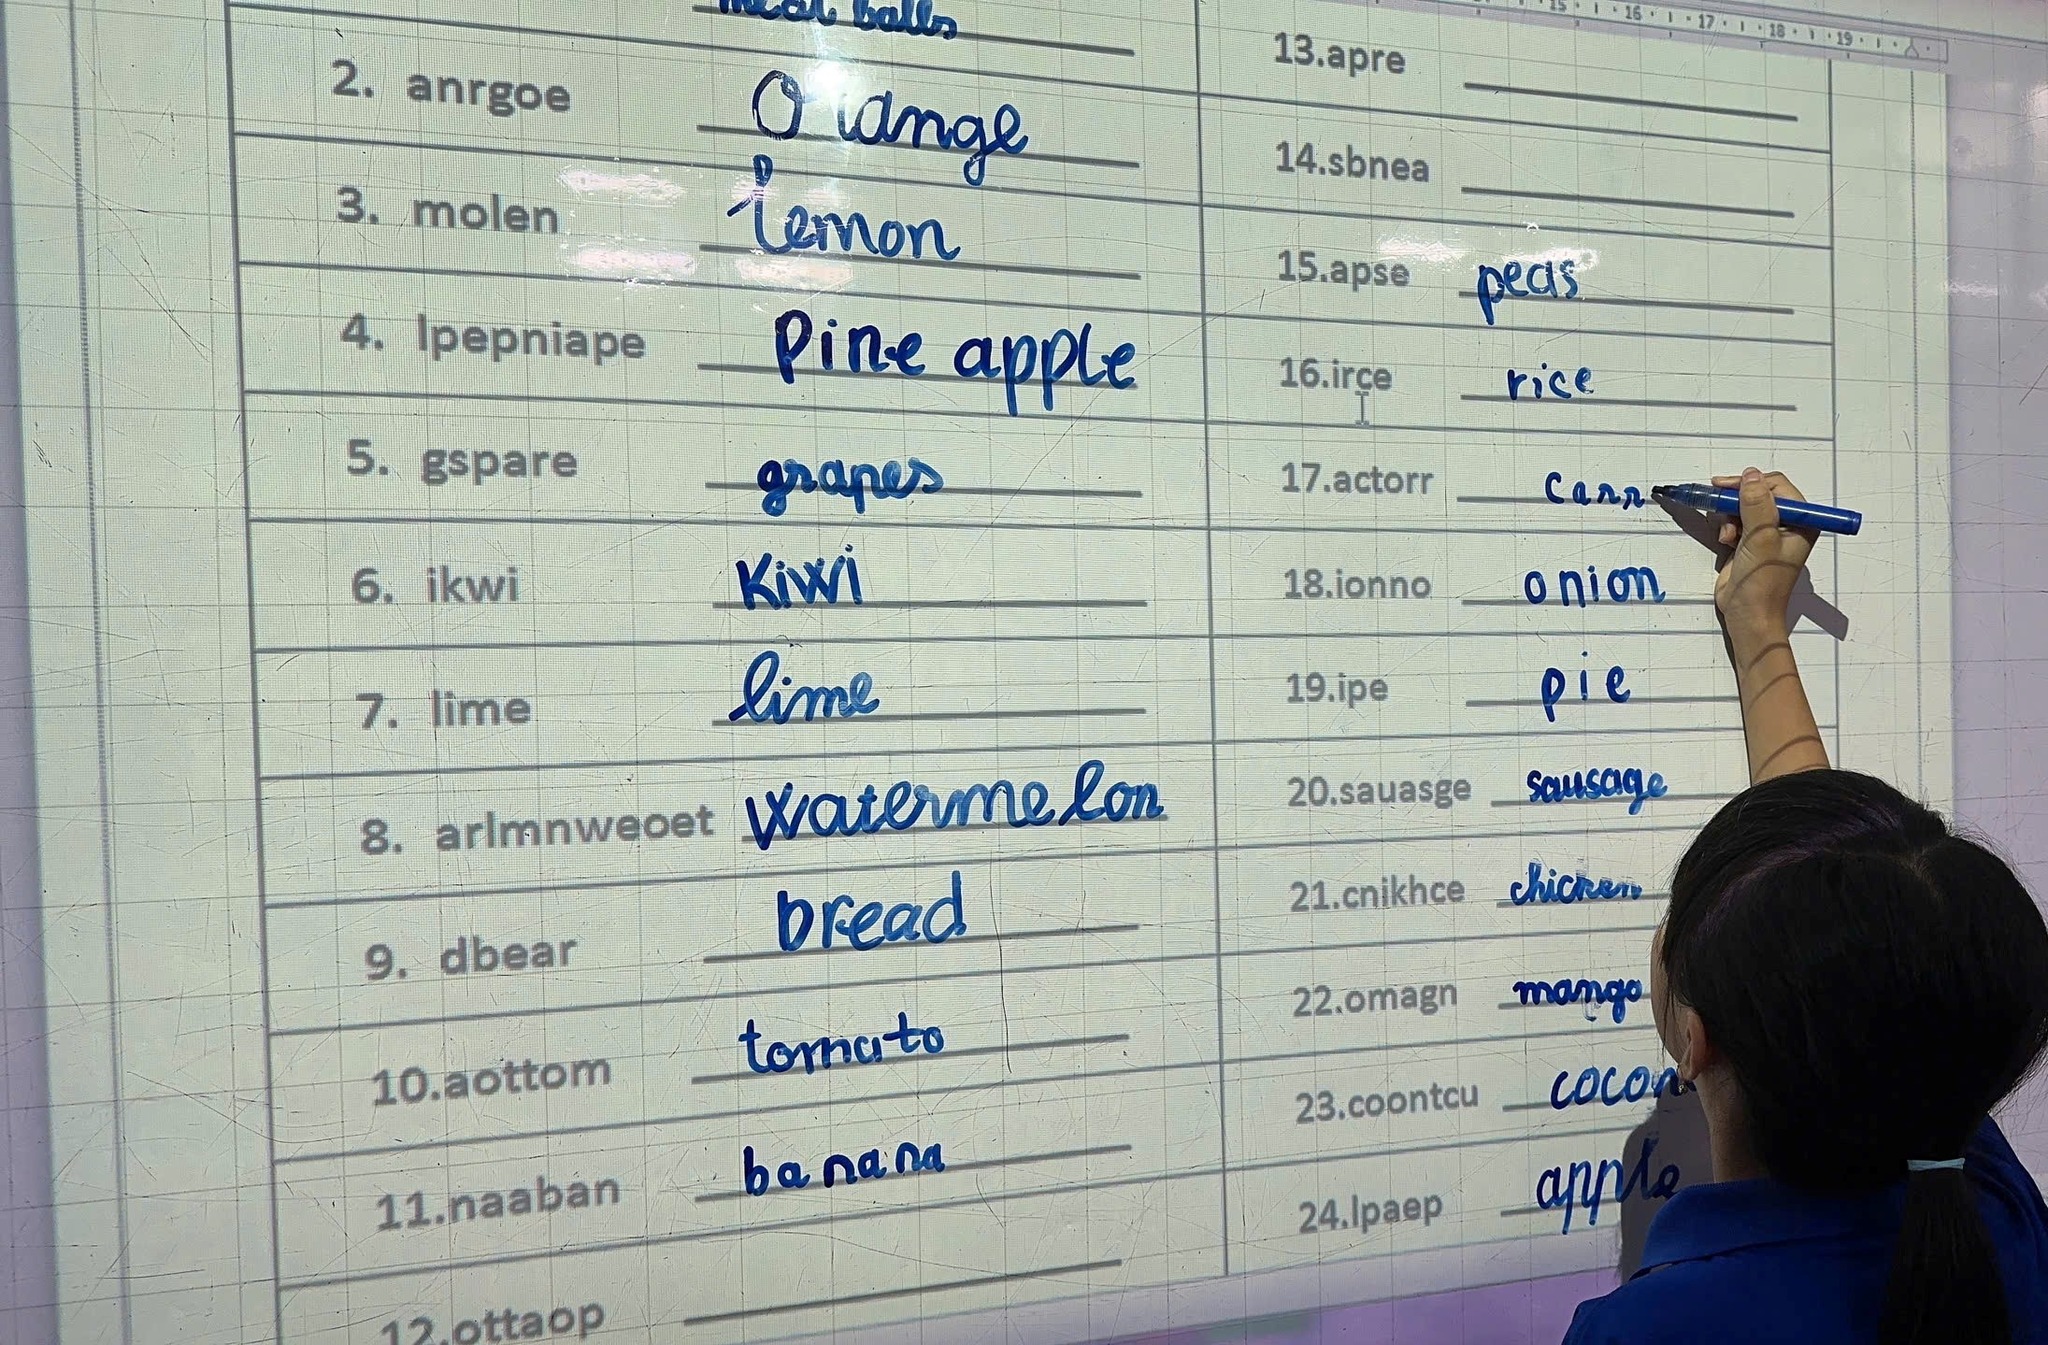 meat balls
2. anrgoe Orange
3. molen lemon
4. lpepniape Pine apple
5. gspare grapes
6. ikwi Kiwi
7. lime lime
8. arlmnweoet watermelon
9. dbear bread
10.aottom tomato
11.naaban banana
12.ottaop
15 16 17 18 19
13.apre
14.sbnea
15.apse peas
16.irce rice
17.actorr carr
18.ionno onion
19.ipe pie
20.sauasge sausage
21.cnikhce chicken
22.omagn mango
23.coontcu cocon
24.lpaep apple